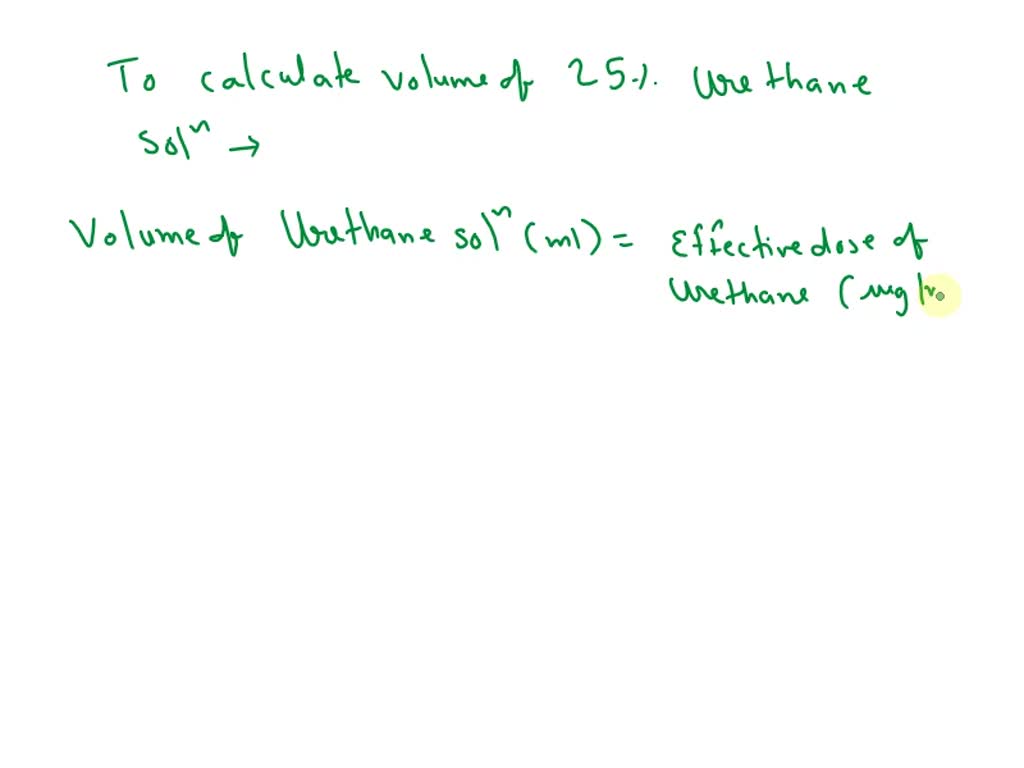 To calculate volume of 25%. Urethane
Solⁿ →
Volume of Urethane solⁿ (ml) = Effective dose of
Urethane (mg|